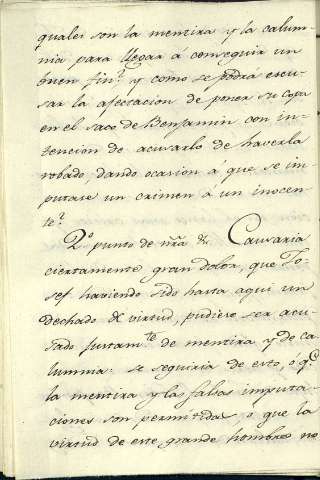 quales son la mentira y la calum-
nia para llegar á conseguir un
buen fin? y como se podrá escu-
sar la afectacion de poner su copa
en el saco de Benjamin con in-
tencion de acusarlo de haverla
robado, dando ocasion á que se im-
putase un crimen á un inocen-
te?
2º punto de nrâ &. Causaria
ciertamente gran dolor, que Jo-
sef haviendo sido hasta aqui un
dechado de virtud, pudiese ser acu-
sado justamte de mentira y de ca-
lumnia: se seguiria de esto, ó qe
la mentira y las falsas imputa-
ciones son permitidas, ó que la
virtud de este grande hombre no